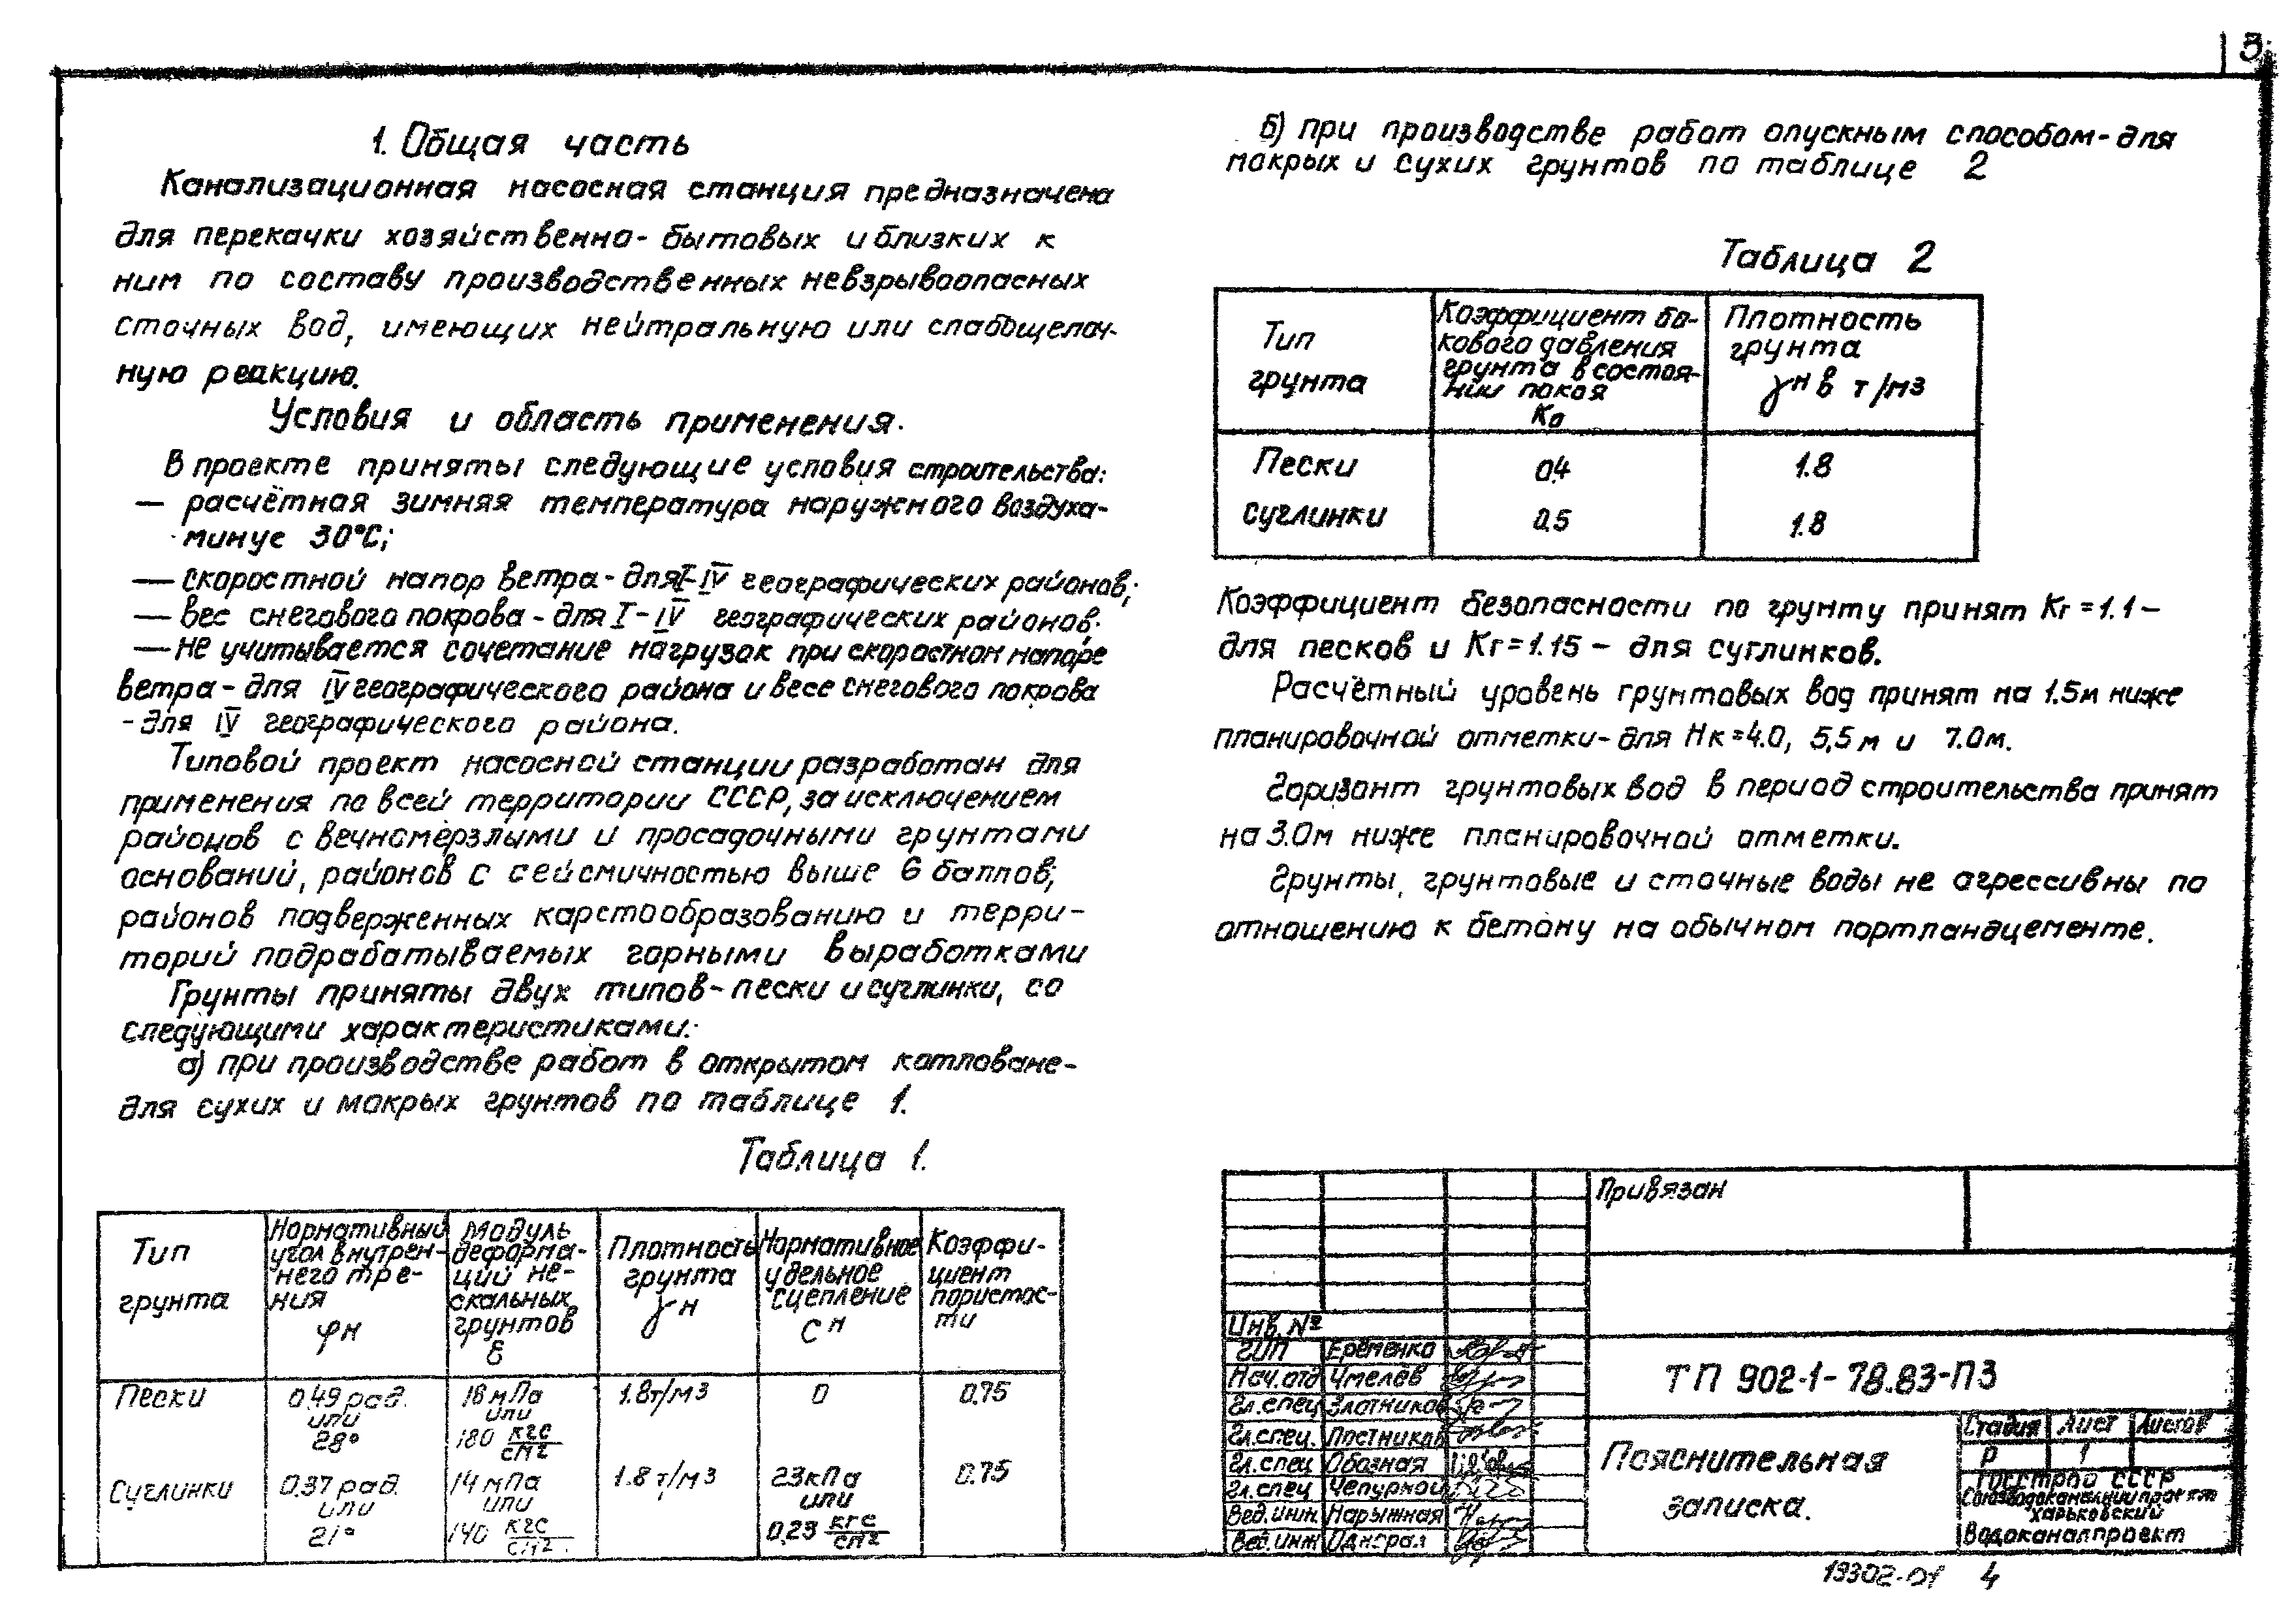 3
1. Общая часть
Канализационная насосная станция предназначена
для перекачки хозяйственно-бытовых и близких к
ним по составу производственных невзрывоопасных
сточных вод, имеющих нейтральную или слабощелоч-
ную реакцию.
Условия и область применения.
В проекте приняты следующие условия строительства:
— расчётная зимняя температура наружного воздуха-
минус 30°С;
— скоростной напор ветра - для I-IV географических районов;
— вес снегового покрова - для I-IV географических районов.
— не учитывается сочетание нагрузок при скоростном напоре
ветра - для IV географического района и весе снегового покрова
- для IV географического района.
Типовой проект насосной станции разработан для
применения по всей территории СССР, за исключением
районов с вечномёрзлыми и просадочными грунтами
оснований, районов с сейсмичностью выше 6 баллов;
районов подверженных карстообразованию и терри-
торий подрабатываемых горными выработками
Грунты приняты двух типов - пески и суглинки, со
следующими характеристиками:
а) при производстве работ в открытом котловане-
для сухих и мокрых грунтов по таблице 1.
Таблица 1.
Тип
грунта
Нормативный
угол внутрен-
него тре-
ния
φн
Модуль
деформа-
ций не-
скальных
грунтов
Е
Плотность
грунта
γн
Нормативное
удельное
сцепление
Сн
Коэффи-
циент
пористос-
ти
Пески
0.49 рад.
или
28°
18 мПа
или
180 кгс/см2
1.8т/м3
0
0.75
Суглинки
0.37 рад
или
21°
14 мПа
или
140 кгс/см2
1.8 т/м3
23кПа
или
0,23 кгс/см2
0.75
б) при производстве работ опускным способом - для
мокрых и сухих грунтов по таблице 2
Таблица 2
Тип
грунта
Коэффициент бо-
кового давления
грунта в состоя-
нии покоя
Ко
Плотность
грунта
γн в т/м3
Пески
0.4
1.8
суглинки
0.5
1.8
Коэффициент безопасности по грунту принят Кг = 1.1 —
для песков и Кг = 1.15 — для суглинков.
Расчётный уровень грунтовых вод принят на 1.5м ниже
планировочной отметки - для Нк = 4.0, 5,5 м и 7.0м.
Горизонт грунтовых вод в период строительства принят
на 3.0м ниже планировочной отметки.
Грунты, грунтовые и сточные воды не агрессивны по
отношению к бетону на обычном портландцементе.
Привязан
Инв. №
ГИП Еременко
Нач. отд Чмелёв
Гл. спец Злотников
Гл. спец. Постников
Гл. спец Обозная
Гл. спец Чепурной
Вед. инж. Нарыжная
Вед. инж
ТП 902-1-78.83-ПЗ
Пояснительная
записка.
Стадия Лист Листов
Р 1
Госстрой СССР
Союзводоканалниипроект
Харьковский
Водоканалпроект
19302-01 4